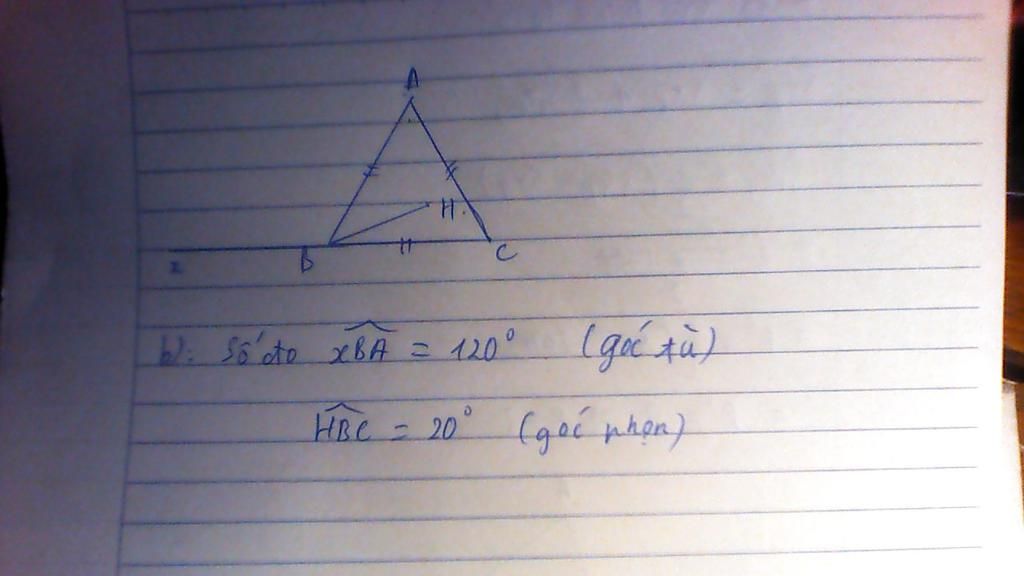 A
H
x B C
b): Số đo xBA = 120° (góc tù)
HBC = 20° (góc nhọn)